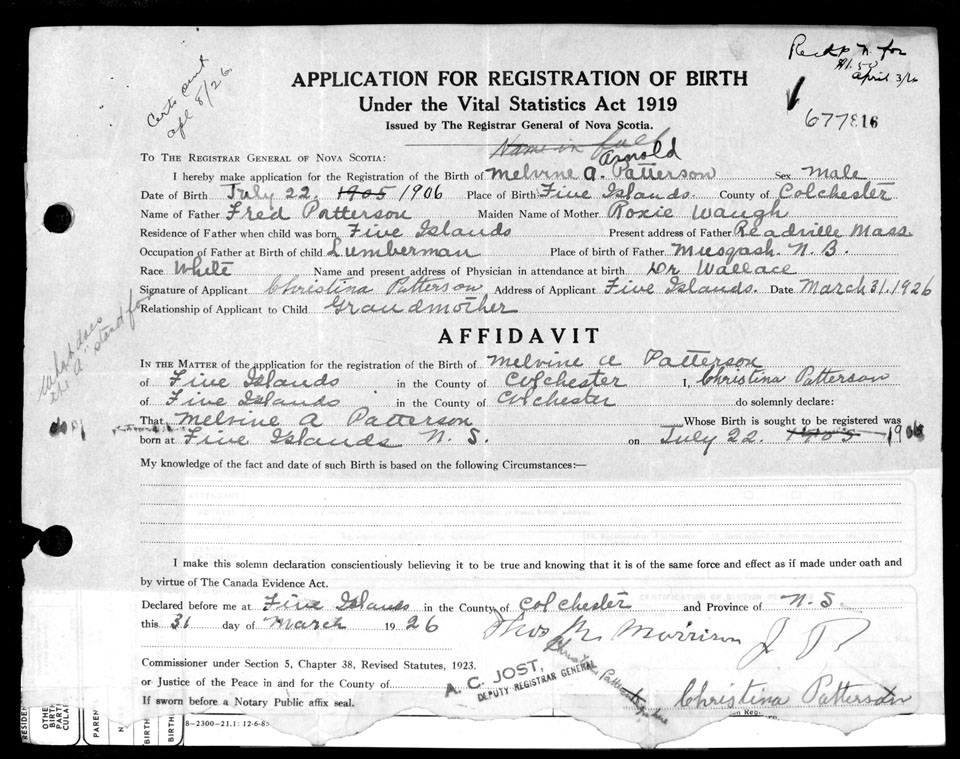 Recd P.N. for
$1.50
April 3/26
Certs sent
apl 8/26
APPLICATION FOR REGISTRATION OF BIRTH
Under the Vital Statistics Act 1919
Issued by The Registrar General of Nova Scotia.
677816
Name in full
Arnold
TO THE REGISTRAR GENERAL OF NOVA SCOTIA:
I hereby make application for the Registration of the Birth of Melvine A. Patterson Sex Male
Date of Birth July 22, 1905 1906 Place of Birth Five Islands. County of Colchester
Name of Father Fred Patterson Maiden Name of Mother Roxie Waugh
Residence of Father when child was born Five Islands Present address of Father Readville Mass
Occupation of Father at Birth of child Lumberman Place of birth of Father Musquash. N. B.
Race White Name and present address of Physician in attendance at birth Dr Wallace
Signature of Applicant Christina Patterson Address of Applicant Five Islands. Date March 31, 1926
Relationship of Applicant to Child Grandmother
What does
the "A" stand for
AFFIDAVIT
IN THE MATTER of the application for the registration of the Birth of Melvine A Patterson
of Five Islands in the County of Colchester I, Christina Patterson
of Five Islands in the County of Colchester do solemnly declare:
That Melvine A Patterson Whose Birth is sought to be registered was
born at Five Islands N. S. on July 22. 1905 1906
My knowledge of the fact and date of such Birth is based on the following Circumstances:—
I make this solemn declaration conscientiously believing it to be true and knowing that it is of the same force and effect as if made under oath and
by virtue of The Canada Evidence Act.
Declared before me at Five Islands in the County of Colchester and Province of N. S.
this 31 day of March 1926 Thos R. Morrison J. P.
Commissioner under Section 5, Chapter 38, Revised Statutes, 1923.
or Justice of the Peace in and for the County of
If sworn before a Notary Public affix seal.
A. C. JOST,
DEPUTY REGISTRAR GENERAL
Christina Patterson
8-2300-21.1: 12-6-85
OTHE
BIRT
PARTI
CULA
PAREN
BIRTH
BIRTH